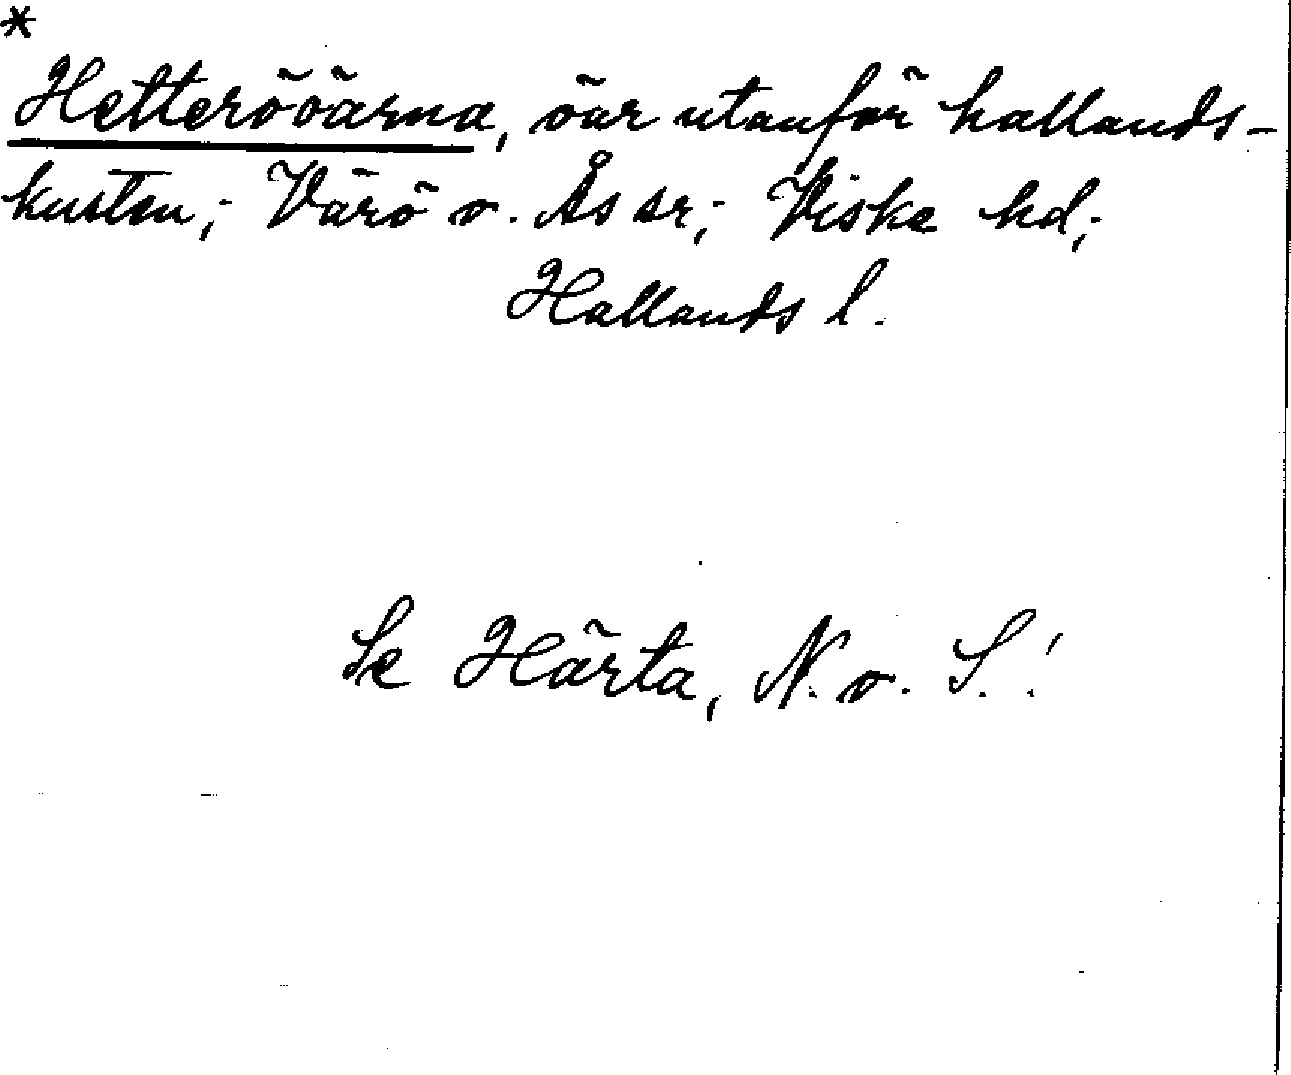 *
Hetteröärna, öar utanför hallands-
kusten; Värö o. Ås sr; Viske hd;
Hallands l.
Se Härta, N. o. S.!